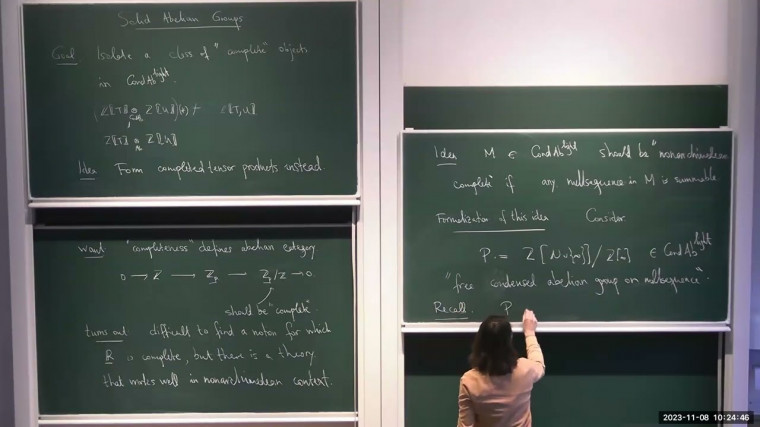 Solid Abelian Groups
Goal Isolate a class of "complete" objects
in CondAb^light.
Z[[T]] ⊗ Z[[U]](*) ≠ Z[[T,U]]
Z[[T]] ⊗ Z[[U]]
Idea Form completed tensor products instead.
want "completeness" defines abelian category
0 → Z → Z_p → Z_p/Z → 0
should be "complete".
turns out difficult to find a notion for which
R is complete, but there is a theory
that works well in nonarchimedean context.
Idea M ∈ CondAb^light should be "nonarchimedean
complete" if any nullsequence in M is summable.
Formalization of this idea Consider
P := Z[N∪{∞}]/Z[∞] ∈ CondAb^light
"free condensed abelian group on nullsequence".
Recall P
2023-11-08 10:24:46